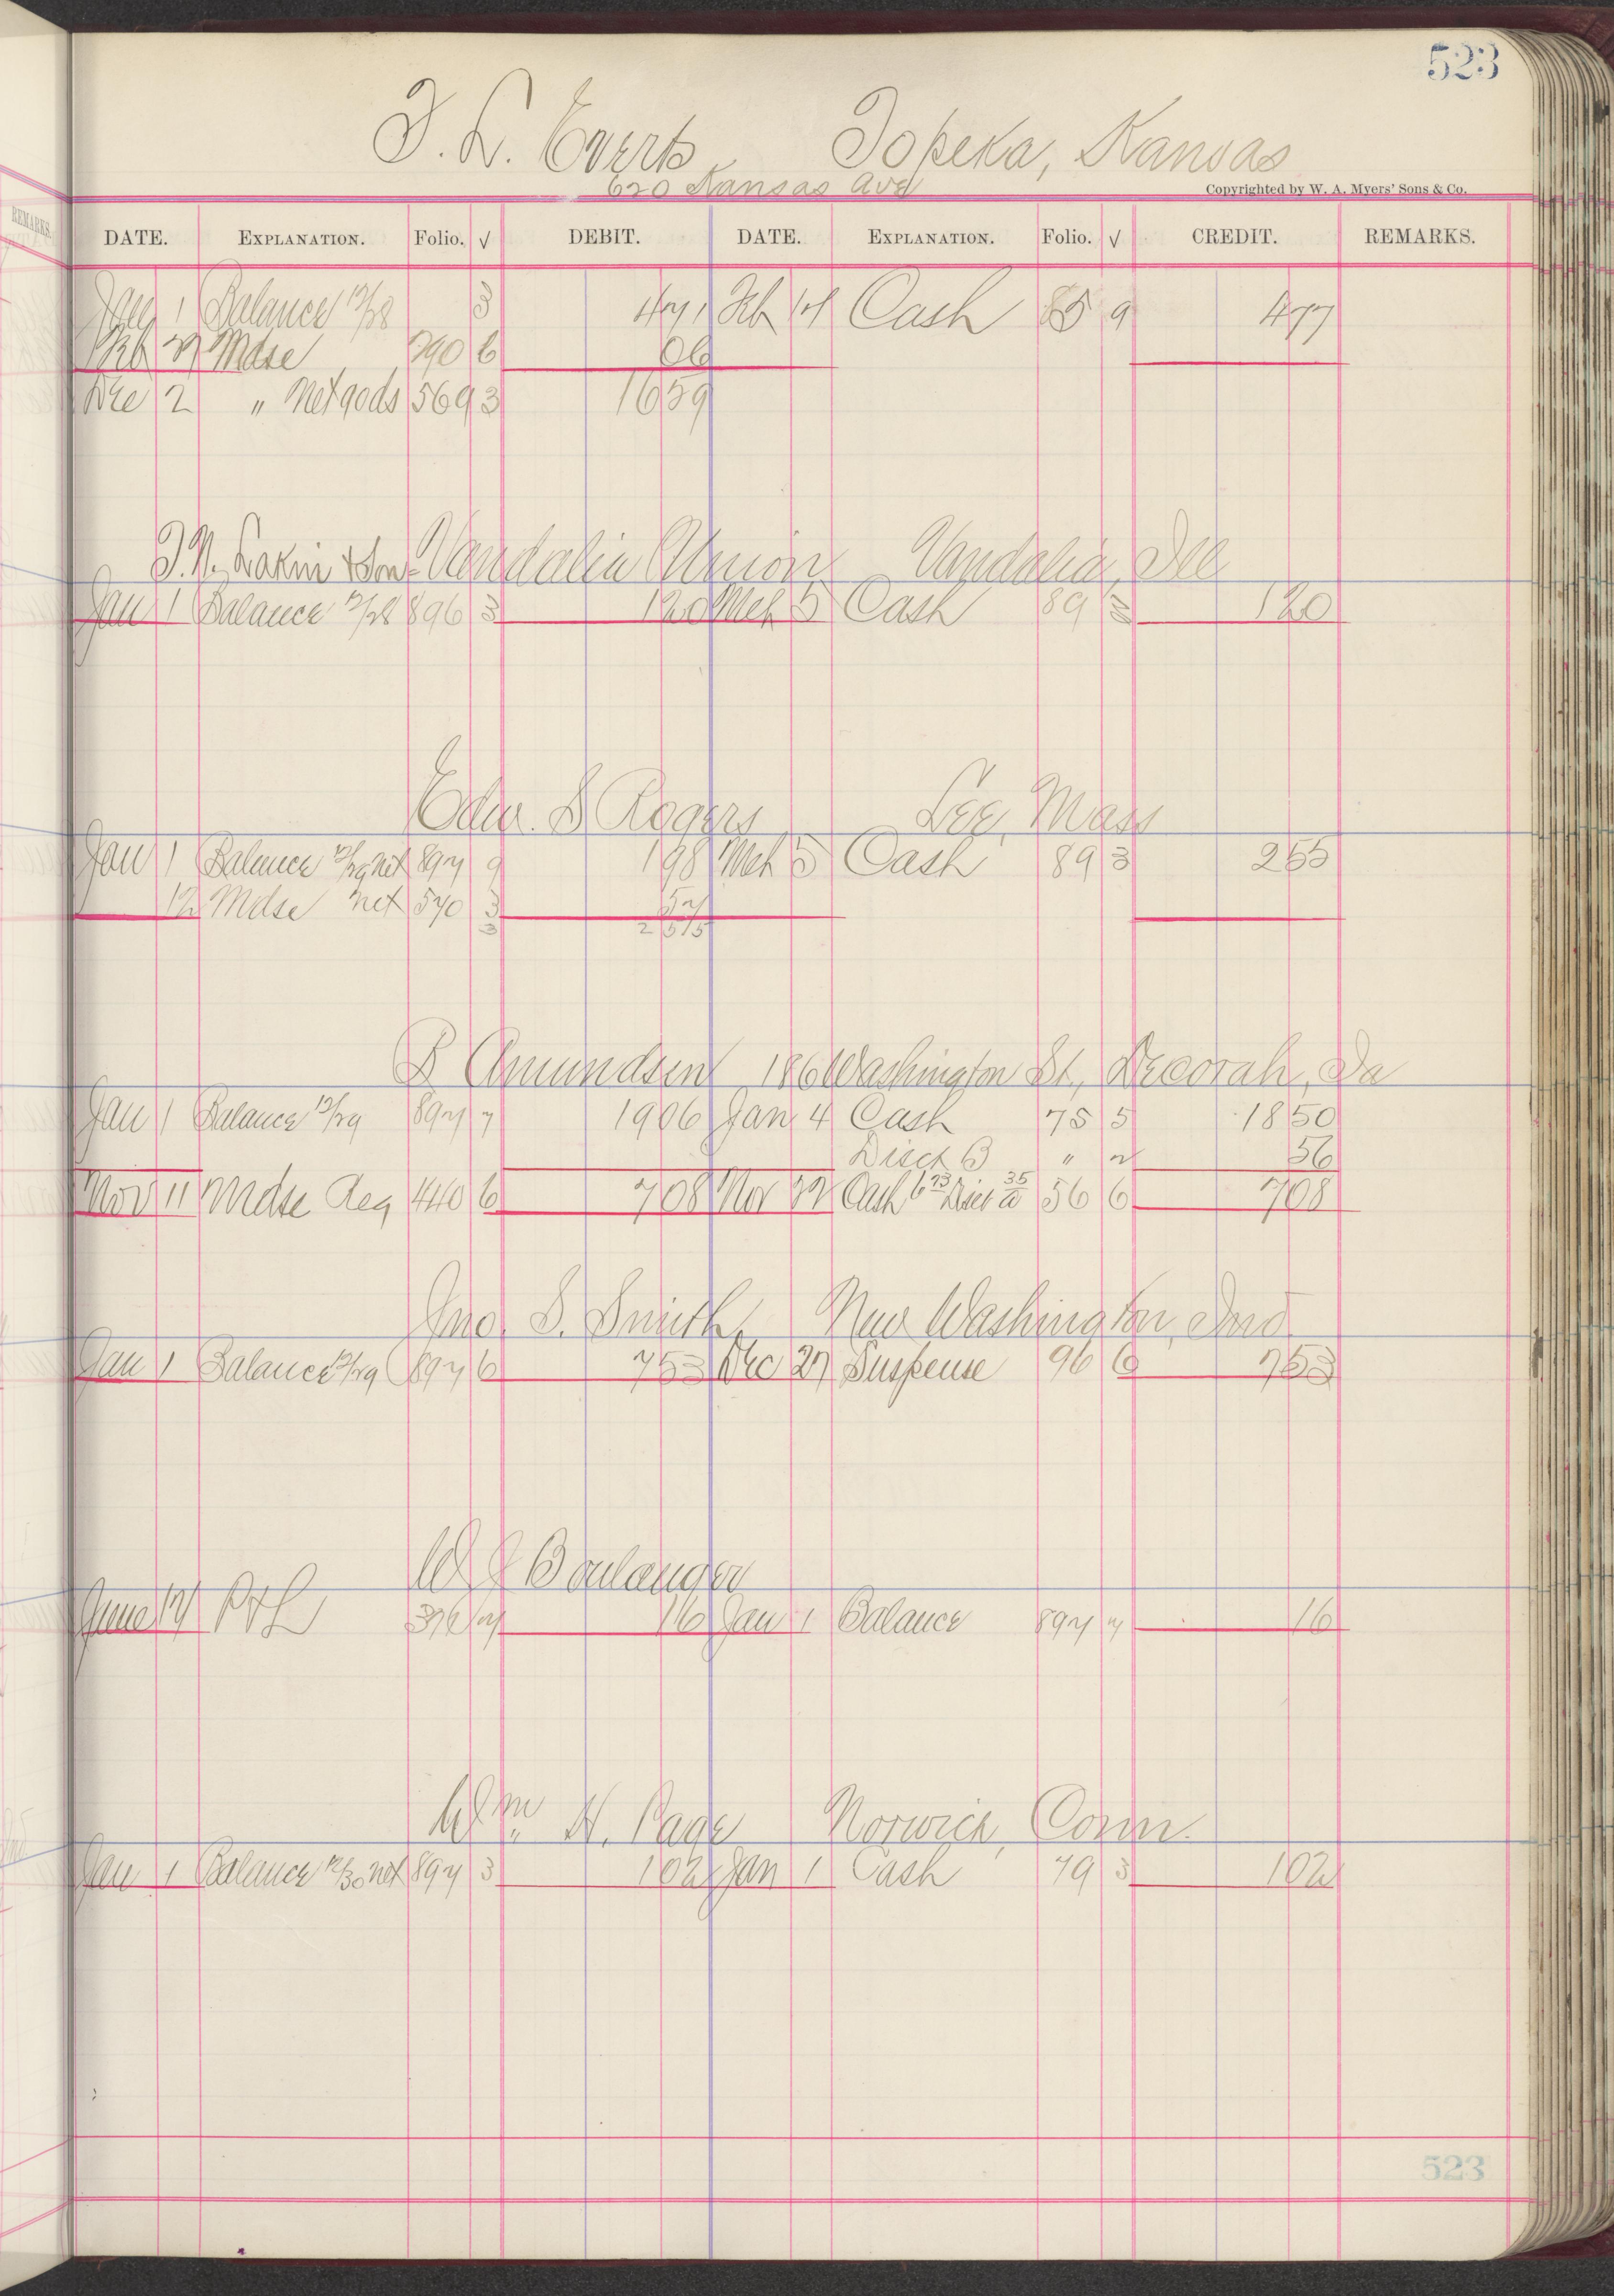 523
T. L. Everts Topeka, Kansas
620 Kansas Ave
Copyrighted by W. A. Myers' Sons & Co.
REMARKS.
DATE. EXPLANATION. Folio. √ DEBIT. DATE. EXPLANATION. Folio. √ CREDIT. REMARKS.
Jan 1 Balance 12/28 3 471 Feb 14 Cash 85 9 477
Feb Mdse 290 6 06
Dec 2 " Net gods 569 3 1659
T. N. Lakin & Son Vandalia Union Vandalia, Ill
Jan 1 Balance 12/28 896 3 120 Mch 5 Cash 89 3 120
Edw. S Rogers Lee, Mass
Jan 1 Balance 12/29 net 897 9 198 Mch 5 Cash 89 3 255
12 Mdse net 570 3 57
3 255
B Amundsen 186 Washington St, Decorah, Ia
Jan 1 Balance 12/29 897 7 1906 Jan 4 Cash 75 5 1850
Disct 3 " 2 56
Nov 11 Mdse Reg 440 6 708 Nov 22 Cash 6 73 Disct 5 35 56 6 708
Jno. S. Smith, New Washington, Ind
Jan 1 Balance 12/29 897 6 753 Dec 27 Suspense 96 6 753
W J Boulanger
June 14 P & L 376 7 16 Jan 1 Balance 897 7 16
Wm H. Page Norwich, Conn.
Jan 1 Balance 12/30 net 897 3 102 Jan 1 Cash 79 3 102
523